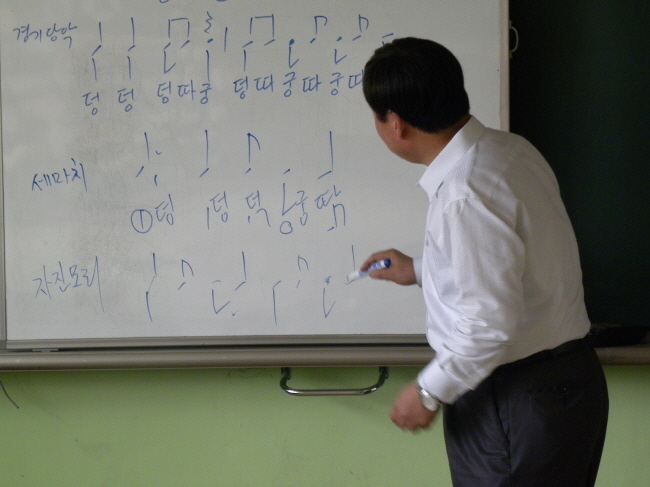 경기당악
덩 덩 덩따궁 덩따궁따궁따
세마치
①덩 덩 덕 궁 딱
자진모리